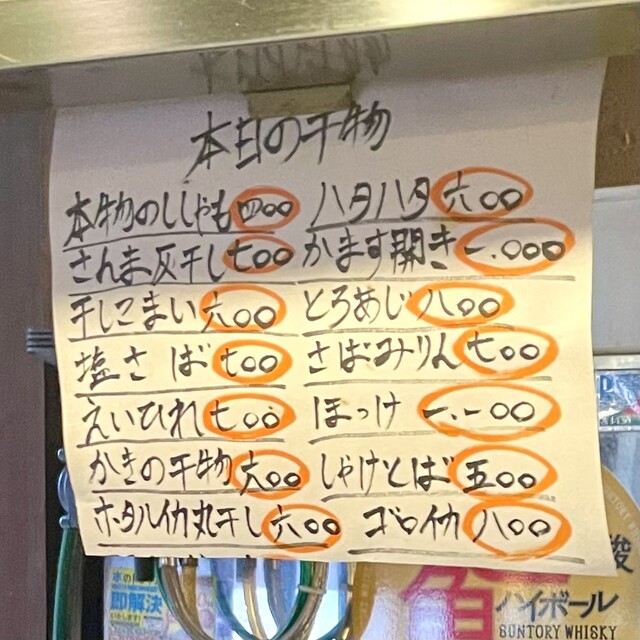 本日の干物
本物のししゃも 四〇〇
ハタハタ 六〇〇
さんま灰干し 七〇〇
かます開き 一.〇〇〇
干しこまい 六〇〇
とろあじ 八〇〇
塩さば 七〇〇
さばみりん 七〇〇
えいひれ 七〇〇
ほっけ 一.一〇〇
かきの干物 六〇〇
しゃけとば 五〇〇
ホタルイカ丸干し 六〇〇
ゴロイカ 八〇〇
即解決
ハイボール
SUNTORY WHISKY